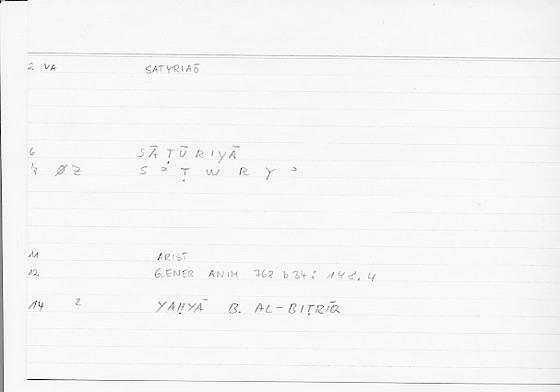 2 VA SATYRIAŌ
6 SĀṬŪRIYĀ
ØZ S ʾ Ṭ W R Y ʾ
11 ARIST
12 GENER ANIM 768 b 34: 148.4
14 2 YAḤYĀ B. AL-BIṬRĪQ